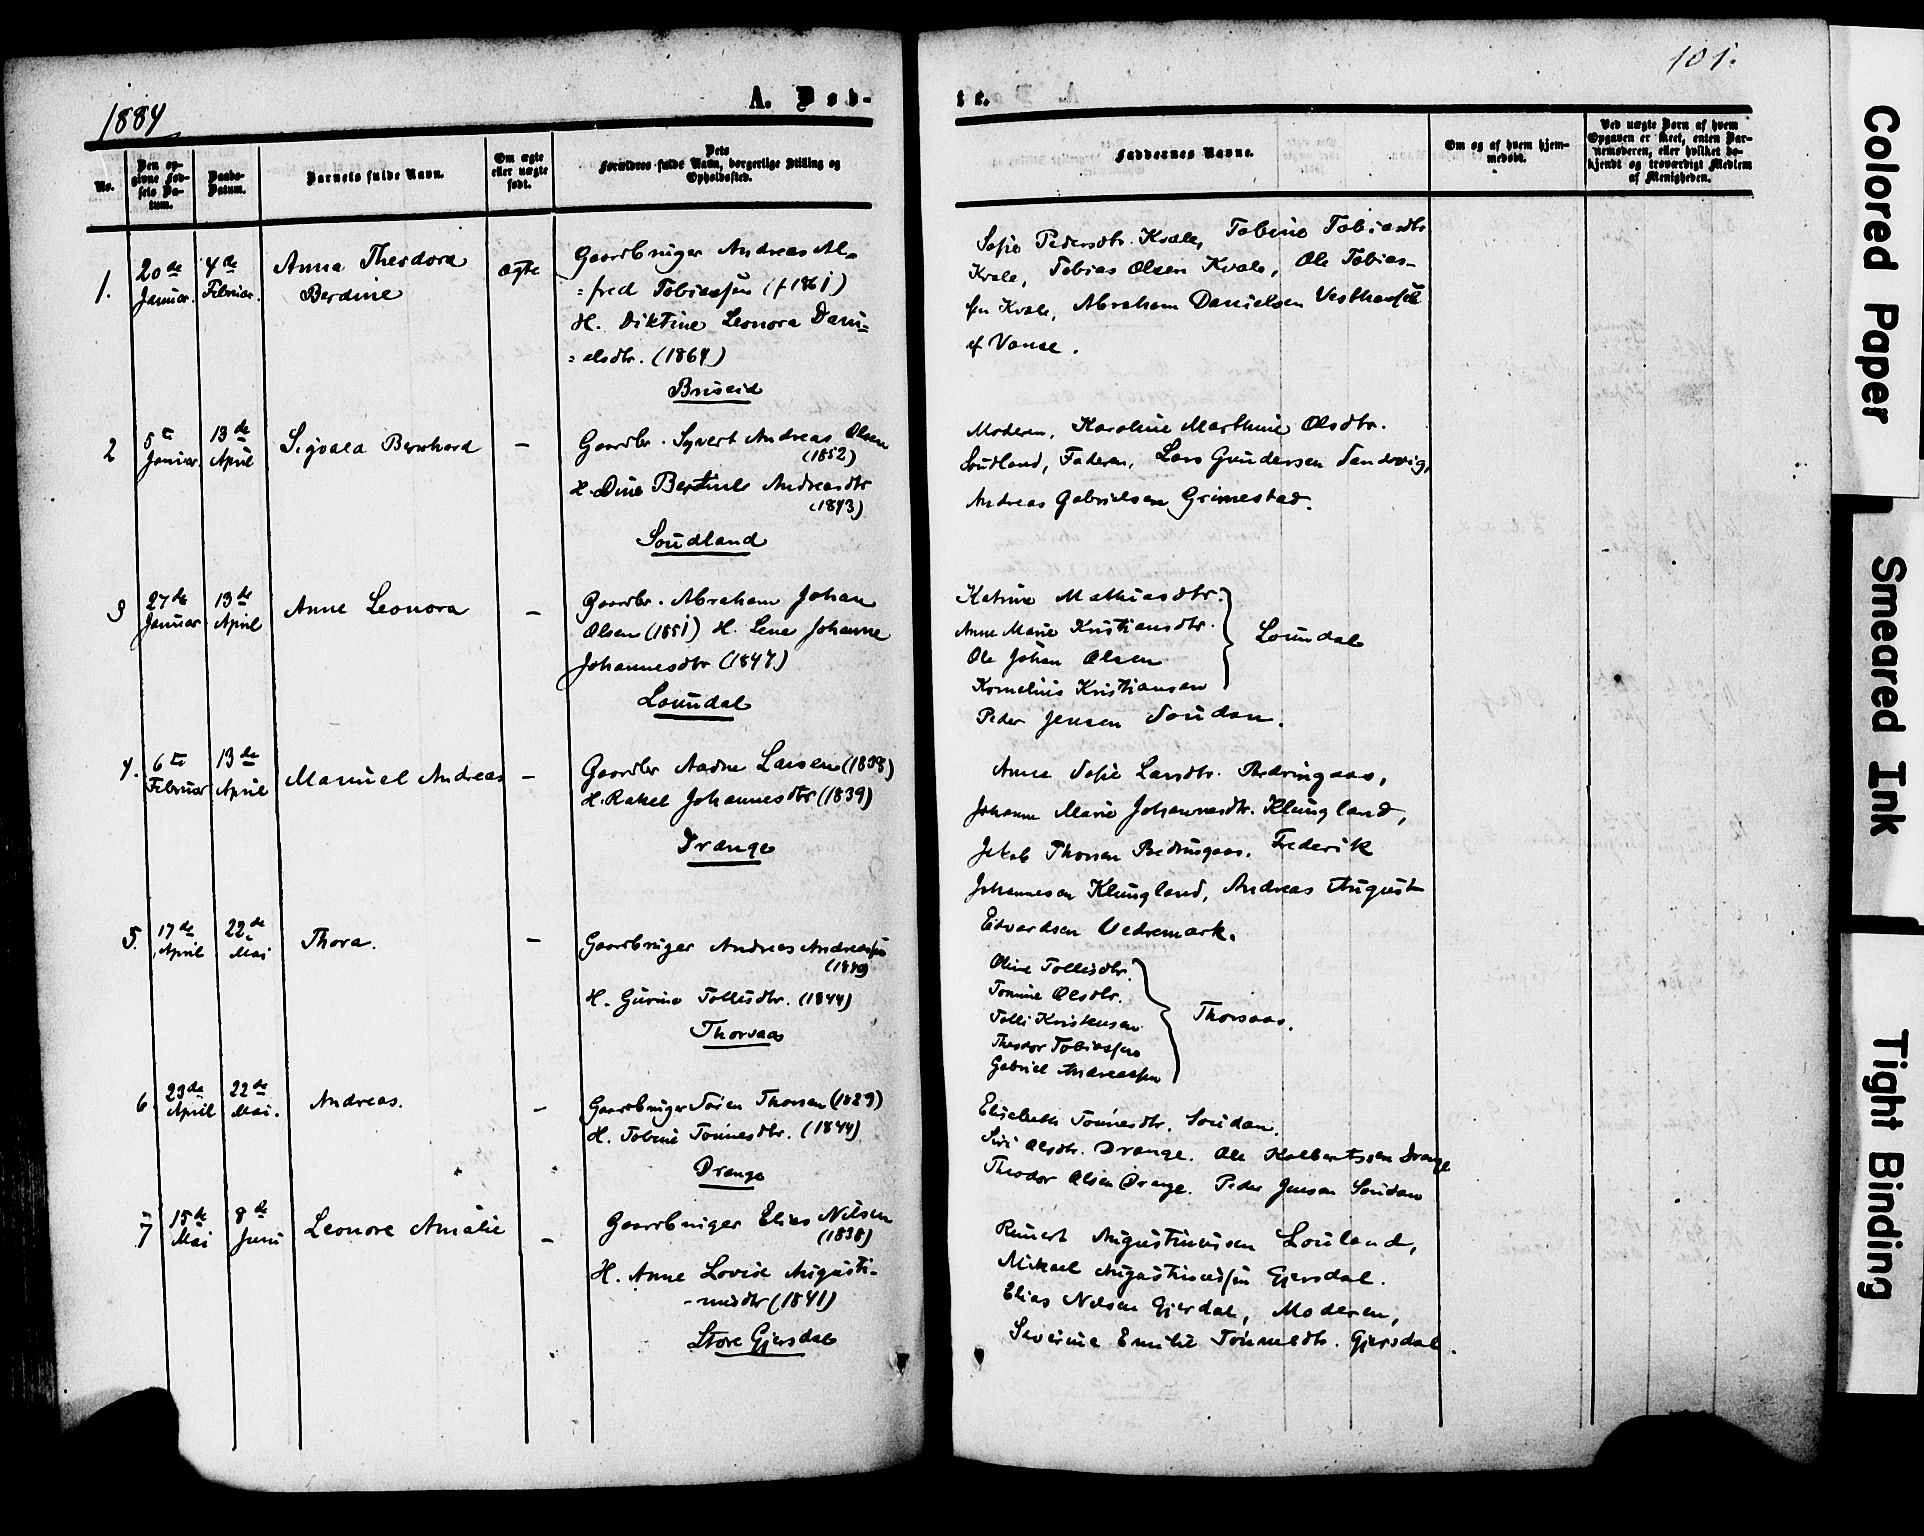 1884
A. Døb-
te.
101.
No.
Den opgivne Fødsels Datum.
Daabs-Datum.
Barnets fulde Navn.
Om ægte eller uægte født.
Dets Forældres fulde Navn, borgerlige Stilling og Opholdssted.
Faddernes Navne.
Om og af hvem hjemmedøbt.
Ved uægte Barn af hvem Opgaven er skeet, enten Barnemoderen, eller hvilket bekjendt og troværdigt Medlem af Menigheden.
1.
20de Januar.
4de Februar.
Anna Theodora
Berdine
ægte
Gaardbruger Andreas Al=
=fred Tobiassen (f 1861)
H. Diktine Leonora Dani=
=elsdtr. (1864)
Briseid
Sofie Pedersdtr. Kvale, Tobine Tobiasdtr
Kvale, Tobias Olsen Kvale, Ole Tobias-
sen Kvale, Abraham Danielsen Vesthassel
af Vanse.
2
5te Januar.
13de April
Sigvald Bernhard
-
Gaardbr. Syvert Andreas Olsen
(1852)
H. Dine Bertine Andreasdtr
(1843)
Soudland
Moderen, Karoline Marthine Olsdtr.
Soudland, Faderen, Lars Gundersen Sandvig,
Andreas Gabrielsen Grimestad.
3
27de Januar
13de April
Anne Leonora
-
Gaardbr. Abraham Johan
Olsen (1851) H. Lene Johanne
Johannesdtr (1847)
Loundal
Katrine Mathiasdtr.
Anne Marie Kristiansdtr.
Ole Johan Olsen
Kornelius Kristiansen
Loundal
Peder Jensen Soudan.
4.
6te Februar
13de April
Manuel Andreas
-
Gaardbr Aadne Larsen (1838)
H. Rakel Johannesdtr (1839)
Drange
Anne Sofie Larsdtr. Bedringaas,
Johanne Marie Johannesdtr. Klungland,
Jakob Thorsen Bedringaas, Frederik
Johannesen Klungland, Andreas August
Edvardsen Vedremark.
5.
17de April
22de Mai
Thora.
-
Gaardbruger Andreas Andreassen
(1840)
H. Gurine Tollisdtr. (1844)
Thorsaas
Oline Tollisdtr.
Tomine Olsdtr.
Tolli Kristensen
Theodor Tobiassen
Gabriel Andreassen
Thorsaas.
6
23de April
22de Mai.
Andreas.
-
Gaardbruger Søren Thorsen (1829)
H. Tobine Tønnesdtr. (1844)
Drange
Elisabeth Tønnesdtr. Soudan,
Siri Olsdtr. Drange. Ole Kolbertssen Drange
Theodor Olsen Drange. Peder Jensen Soudan
7
15de Mai
8de Juni
Leonore Amalie
-
Gaardbruger Elias Nilsen
(1838)
H. Anne Lovise Augusti-
-nusdtr (1841)
Store Gjersdal
Reinert Augustinussen Louland,
Mikael Augustinussen Gjersdal.
Elias Nilsen Gjerdal, Moderen,
Severine Emilie Tønnesdtr. Gjersdal.
Colored Paper
Smeared Ink
Tight Binding